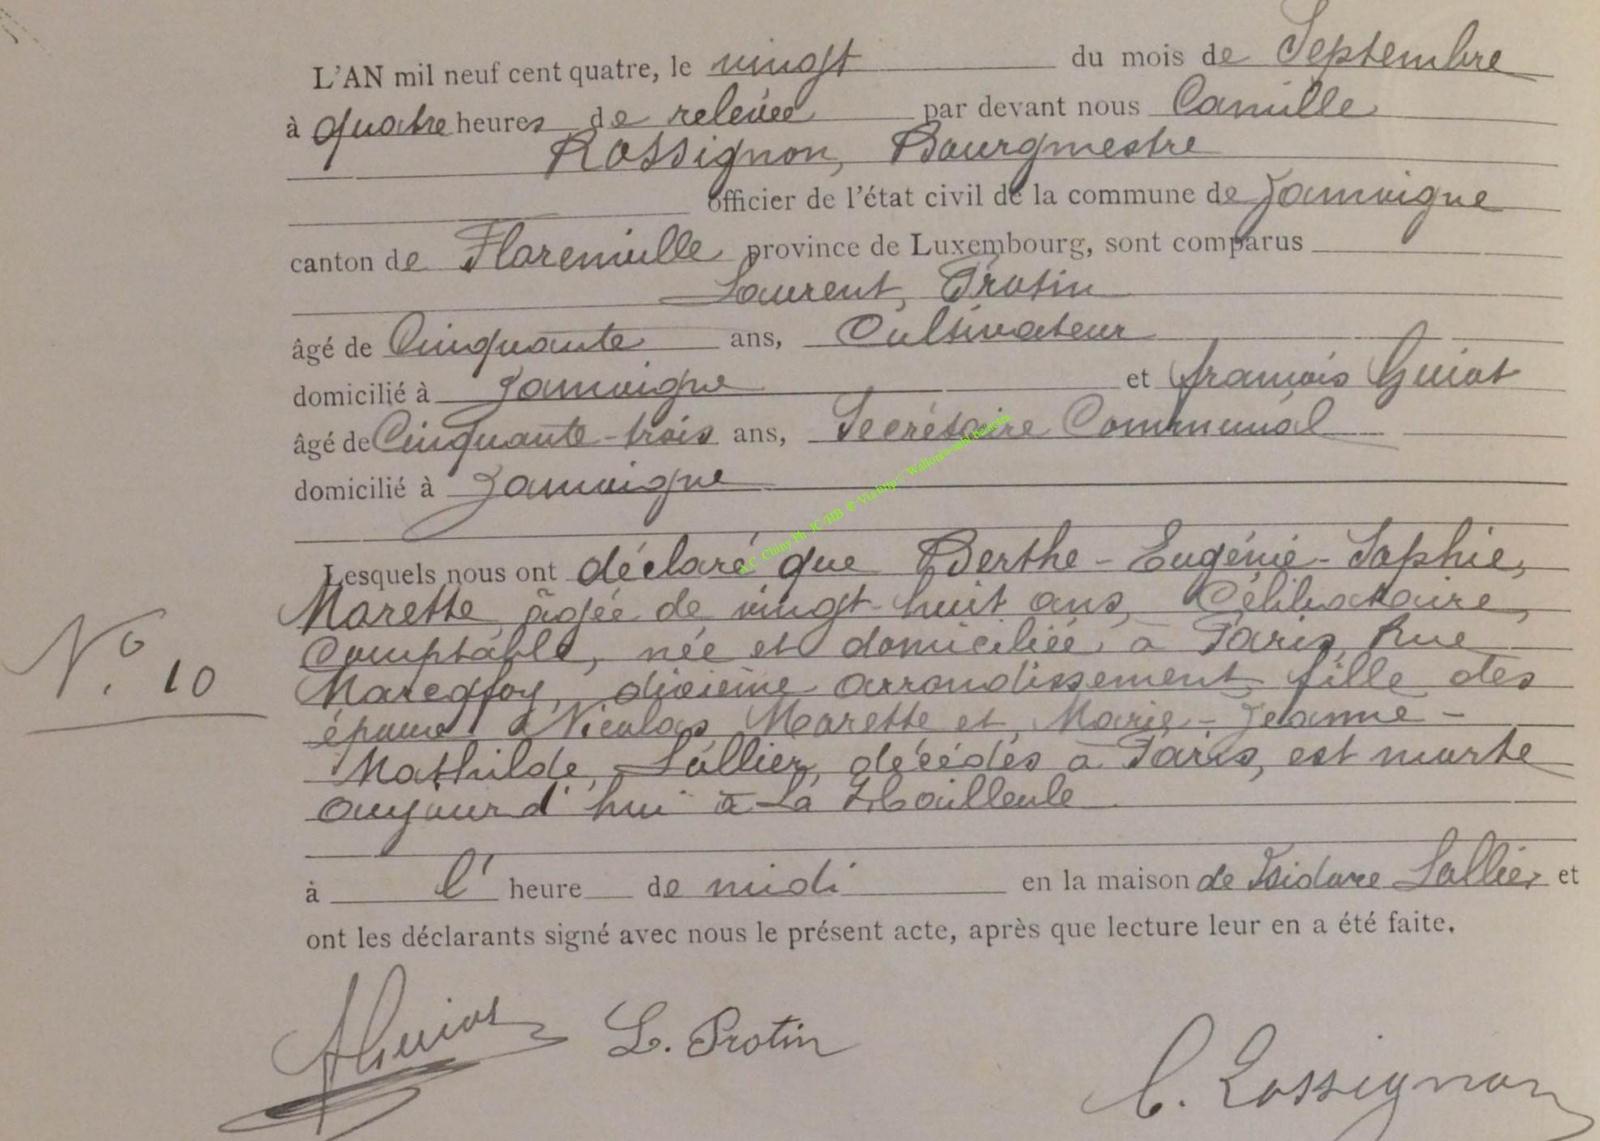 L'AN mil neuf cent quatre, le vingt du mois de Septembre
à quatre heures de relevée par devant nous Camille
Rossignon, Bourgmestre
officier de l'état civil de la commune de Jamoigne
canton de Florenville province de Luxembourg, sont comparus
Laurent, Protin
âgé de Cinquante ans, Cultivateur
domicilié à Jamoigne et françois Guiot
âgé de Cinquante-trois ans, Secrétaire Communal
domicilié à Jamoigne
Lesquels nous ont déclaré que Berthe-Eugénie-Sophie,
Marette âgée de vingt-huit ans, Célibataire,
Comptable, née et domiciliée à Paris, Rue
dixième arrondissement, fille des
époux Nicolas Marette et Marie-Jeanne-
Mathilde, Lallier, décédés à Paris, est morte
aujourd'hui à La
N° 10
à l' heure de midi en la maison de Isidore Lallier et
ont les déclarants signé avec nous le présent acte, après que lecture leur en a été faite.
Guiot L. Protin
C. Rossignon